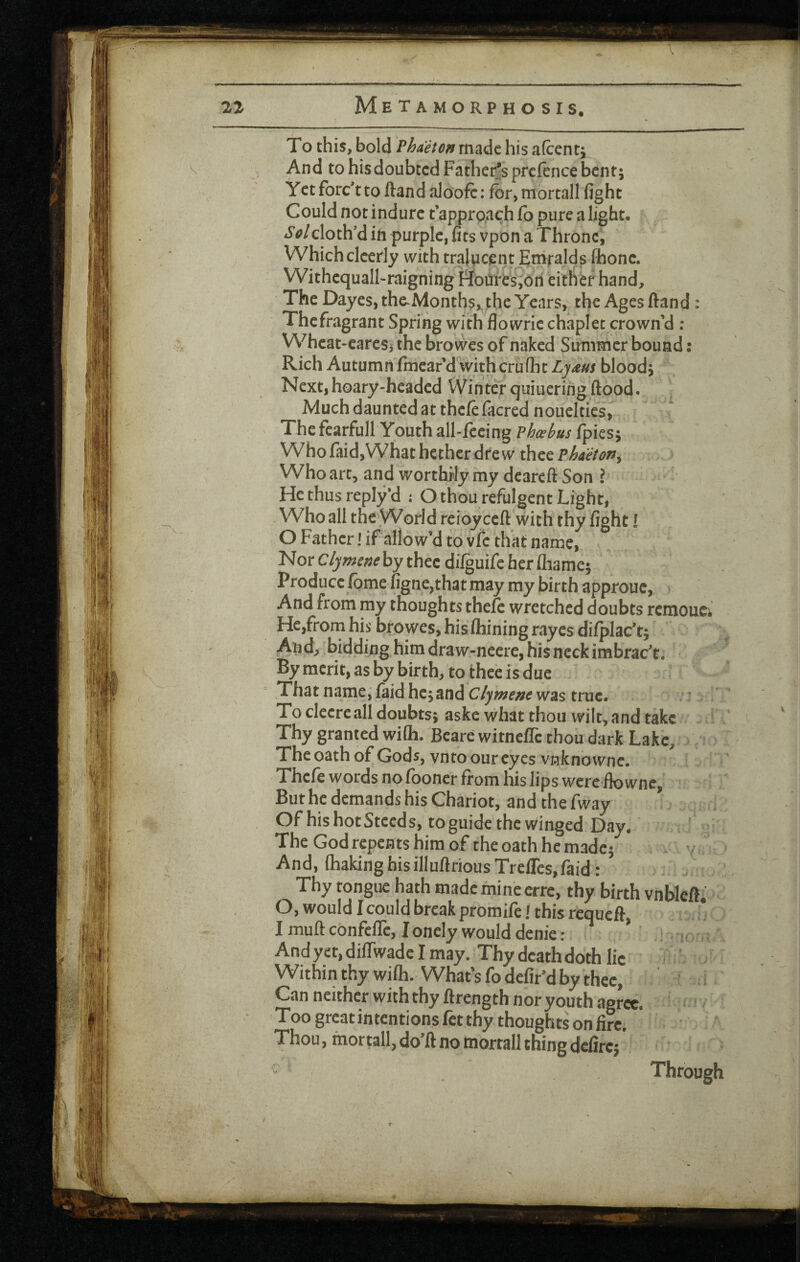 22 METAMORPHOSIS.
To this, bold Phaëton made his aſcent;
And to his doubted Father's preſence bent;
Yet forc't to ſtand aloofe: for, mortall ſight
Could not indure t'approach ſo pure a light.
Sol cloth'd in purple, ſits vpon a Throne,
Which cleerly with tralucent Emralds ſhone.
With equall-raigning Houres, on either hand,
The Dayes, the Months, the Years, the Ages ſtand:
The fragrant Spring with flowrie chaplet crown'd:
Wheat-eares, the browes of naked Summer bound:
Rich Autumn ſmear'd with cruſht Lyæus blood;
Next, hoary-headed Winter quiuering ſtood.
Much daunted at theſe ſacred nouelties,
The fearfull Youth all-ſeeing Phœbus ſpies;
Who ſaid, What hether drew thee Phaëton,
Who art, and worthily my deareſt Son?
He thus reply'd: O thou refulgent Light,
Who all the World reioyceſt with thy ſight!
O Father! if allow'd to vſe that name,
Nor Clymene by thee diſguiſe her ſhame;
Produce ſome ſigne, that may my birth approue,
And from my thoughts theſe wretched doubts remoue.
He, from his browes, his ſhining rayes diſplac't;
And, bidding him draw-neere, his neck imbrac't.
By merit, as by birth, to thee is due
That name, ſaid he; and Clymene was true.
To cleere all doubts; aske what thou wilt, and take
Thy granted wiſh. Beare witneſſe thou dark Lake,
The oath of Gods, vnto our eyes vnknowne.
Theſe words no ſooner from his lips were flowne,
But he demands his Chariot, and the ſway
Of his hot Steeds, to guide the winged Day.
The God repents him of the oath he made;
And, ſhaking his illuſtrious Treſſes, ſaid:
Thy tongue hath made mine erre, thy birth vnbleſt.
O, would I could break promiſe! this requeſt,
I muſt confeſſe, I onely would denie:
And yet, diſſwade I may. Thy death doth lie
Within thy wiſh. What's ſo deſir'd by thee,
Can neither with thy ſtrength nor youth agree.
Too great intentions ſet thy thoughts on fire.
Thou, mortall, do'ſt no mortall thing deſire;
Through